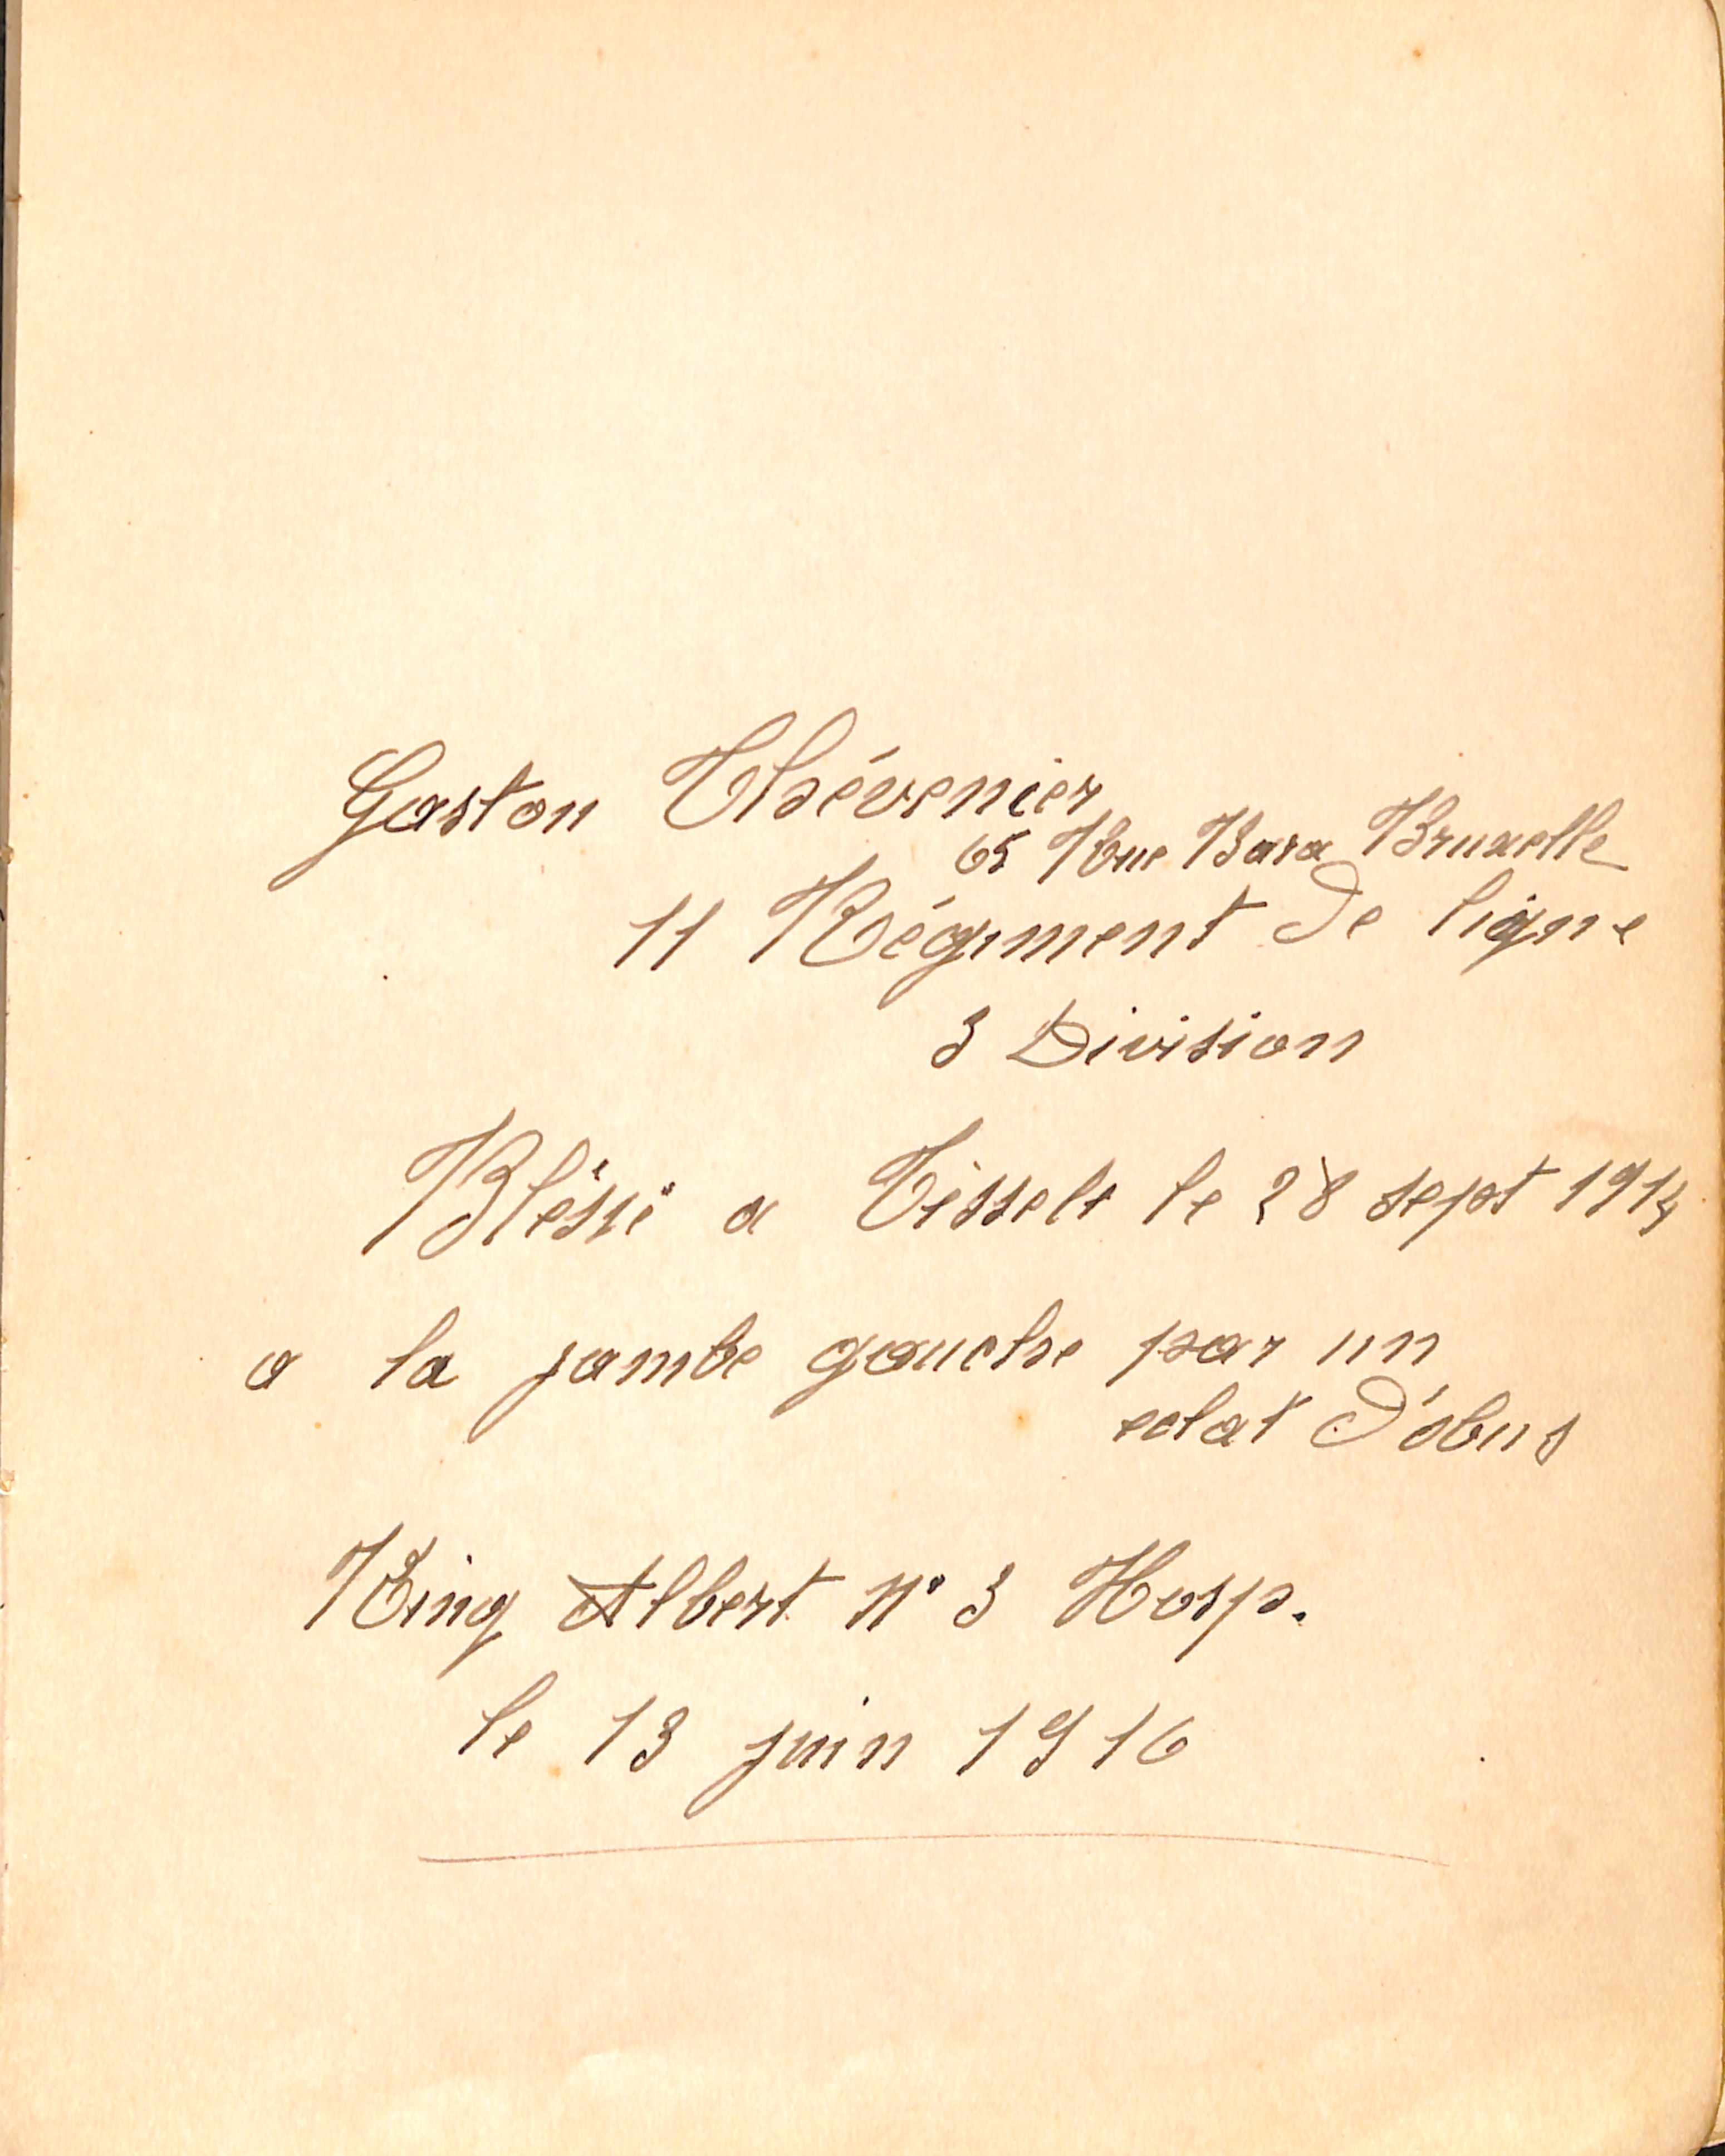 Gaston Thévenier
65 Rue Bara Bruxelle
11 Régiment de ligne
3 Division
Bléssé a Tisselt le 28 sept 1914
a la jambe gauche par un
eclat d'obus
King Albert n° 3 Hosp.
le 13 juin 1916